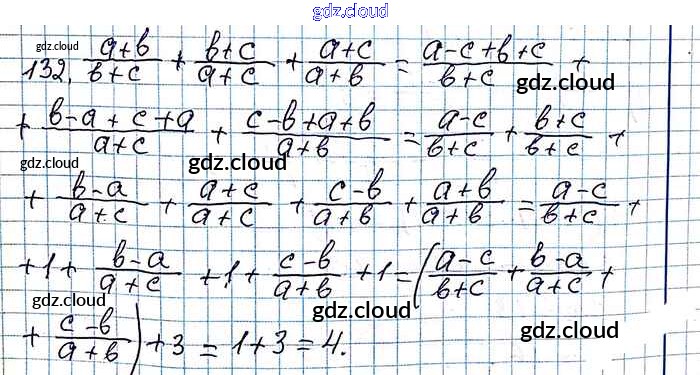 gdz.cloud
gdz.cloud
132. (a+b)/(b+c) + (b+c)/(a+c) + (a+c)/(a+b) = (a-c+b+c)/(b+c) +
gdz.cloud
+ (b-a+c+a)/(a+c) + (c-b+a+b)/(a+b) = (a-c)/(b+c) + (b+c)/(b+c) +
gdz.cloud
gdz.cloud
+ (b-a)/(a+c) + (a+c)/(a+c) + (c-b)/(a+b) + (a+b)/(a+b) = (a-c)/(b+c) +
+1+ (b-a)/(a+c) +1+ (c-b)/(a+b) +1=((a-c)/(b+c) + (b-a)/(a+c) +
gdz.cloud
gdz.cloud
+ (c-b)/(a+b)) +3 = 1+3=4.
gdz.cloud